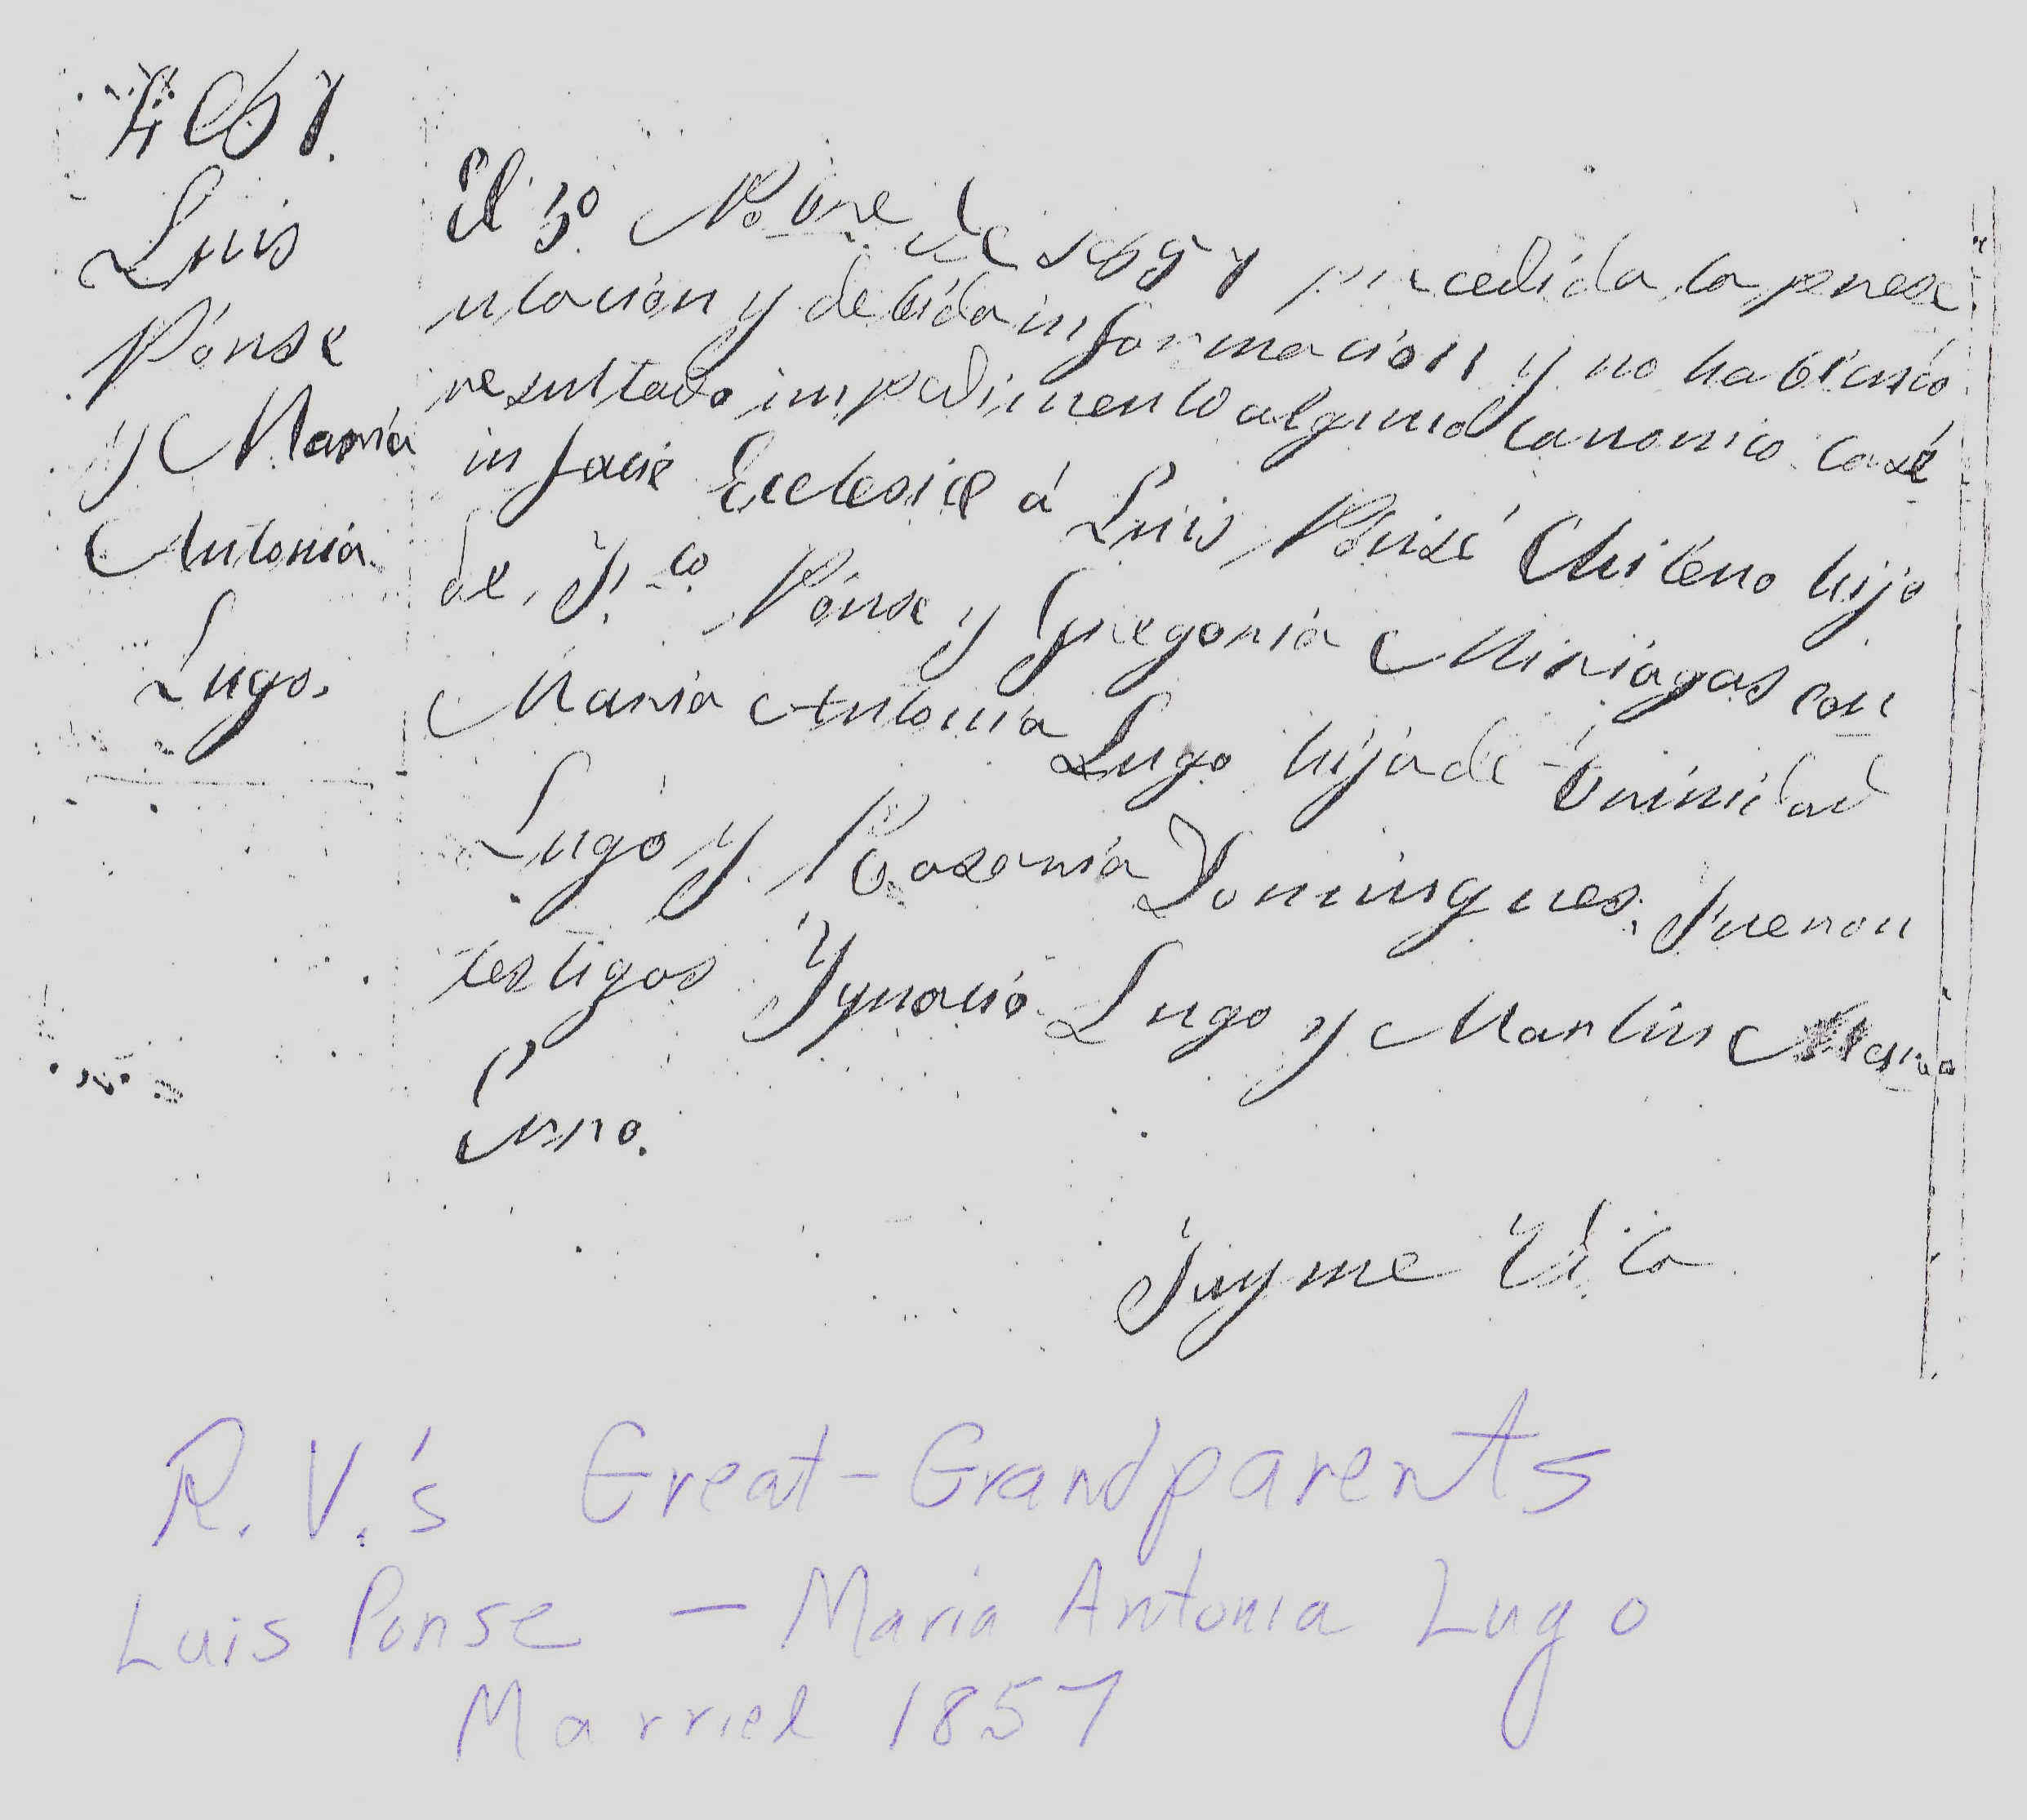 Luis
Ponse
y Maria
Antonia
Lugo.
El 30 Nobre de 1857 precedida la presen
tacion y debida informacion y no habiendo
resultado impedimento alguno canonico casé
in facie Ecclesiæ á Luis Ponse Chileno hijo
de Fco Ponse y Gregoria Miriagas con
Maria Antonia Lugo hija de Trinidad
Lugo y Rosaria Domingues. Fueron
testigos Ygnacio Lugo y Martin
Jayme Vila
R.V.'s Great-Grandparents
Luis Ponse — Maria Antonia Lugo
Married 1857